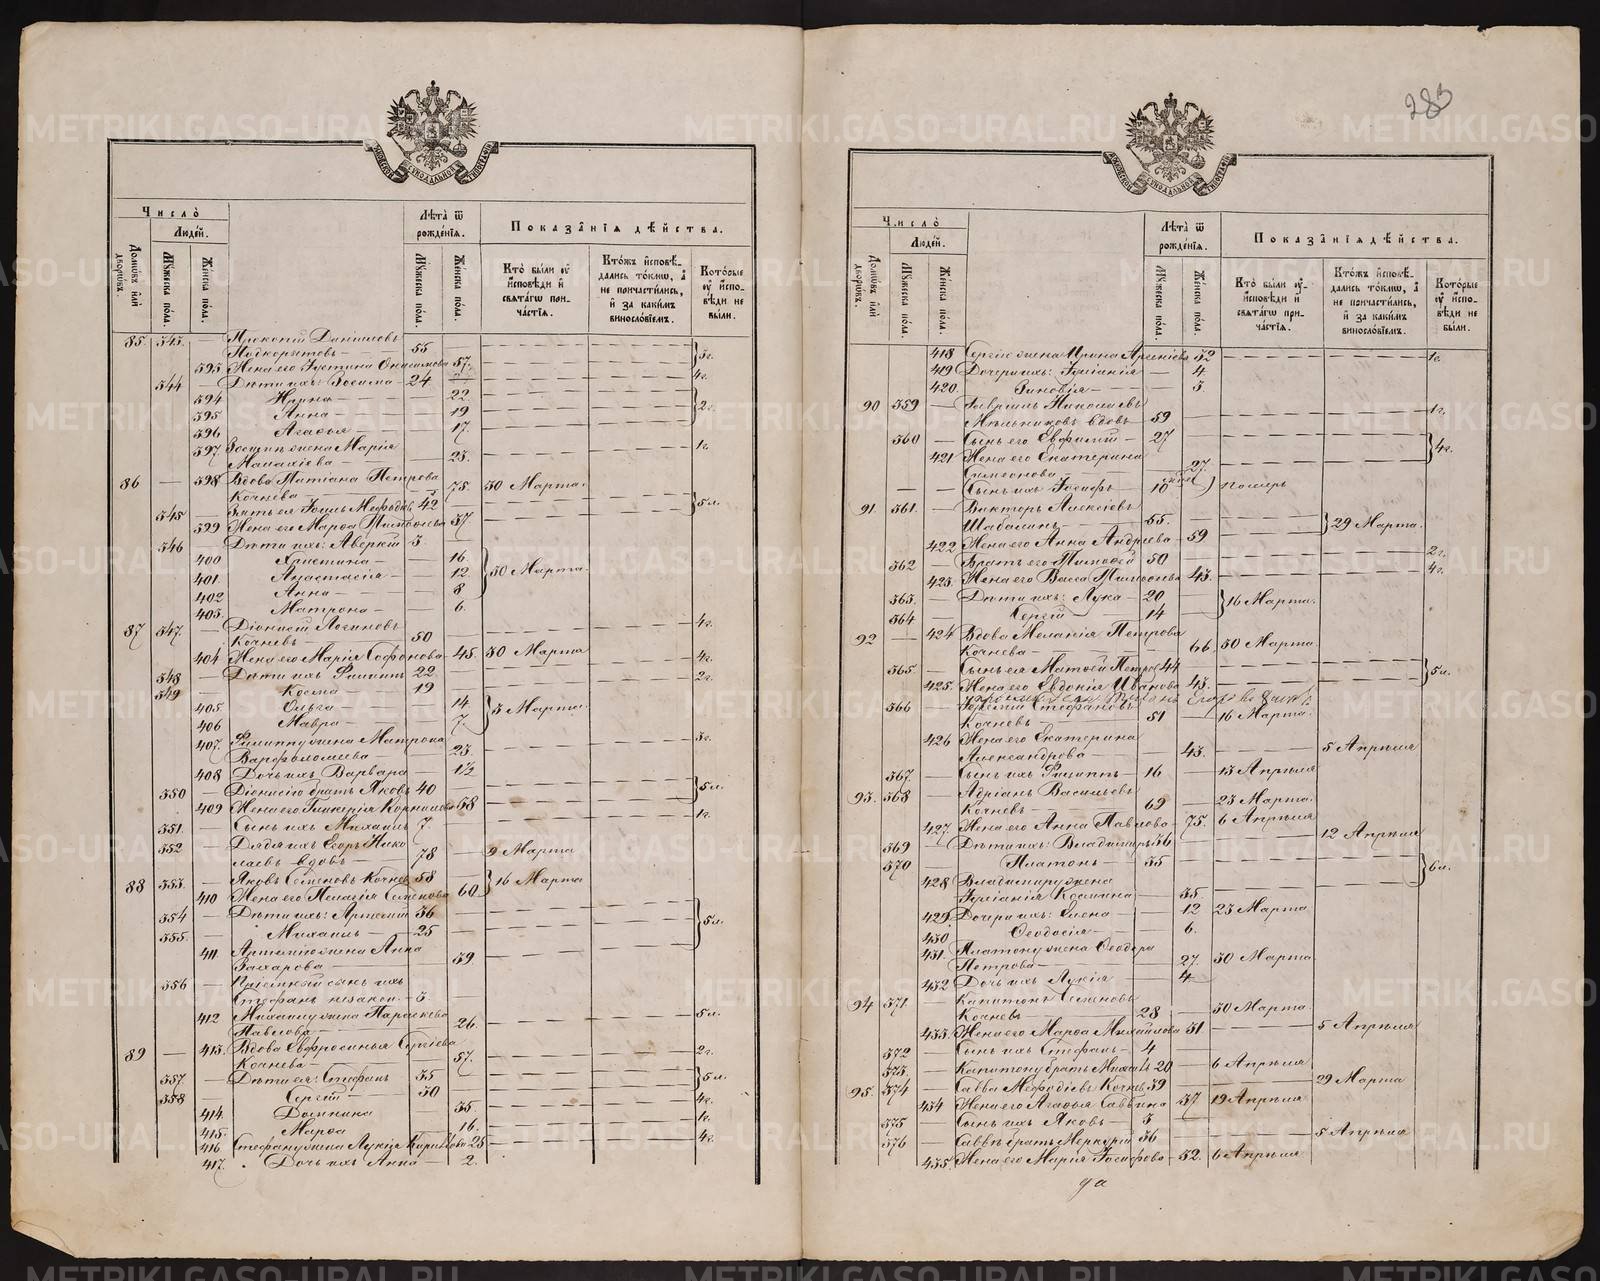 283
МОСКОВСКОЙ СѴНОДАЛЬНОЙ ТИПОГРАФІИ
Число̀
Людей.
Домѡвъ илѝ дворѡвъ.
Мꙋжеска пола.
Женска пола.
Лѣта̀ ѿ рожденїѧ.
Мꙋжеска пола.
Женска пола.
Показа̑нїѧ дѣйства.
Кто̀ были оу҆ исповѣди й свѧтагѡ причастїѧ.
Ктожъ исповѣдались токмѡ, а҆ не причастились, й за какимъ винословїемъ.
Которые оу҆ исповѣди не были.
85 343. Прокопій Даниловъ
Подкорытовъ 55 3г.
393 Жена его Іустина Онисимова 57.
344 Дѣти ихъ: Зосима 24 4г.
394 Ирина 22 2г.
395 Анна 19
396 Агафья 17.
397 Зосимы жена Марія
Малахіева 23. 1г.
86 398 Вдова Татіана Петрова
Кочнева 78. 30 Марта.
345 Зять ея Іоиль Меѳодіевъ 42 5л.
399 Жена его Марѳа Тимоѳеева 37
346 Дѣти ихъ: Аверкій 3
400 Христина 16.
401. Анастасія 12. 30 Марта.
402 Анна 8
403. Матрона 6.
87 347. Діонисій Логиновъ
Кочневъ 50 4г.
404 Жена его Марія Софонова 45. 30 Марта
348 Дѣти ихъ Филиппъ 22 4г.
349 Косма 19 2г.
405 Ольга 14. 3 Марта.
406 Мавра 7.
407. Филиппу жена Матрона
Варѳоломеева 23. 3г.
408 Дочь ихъ Варвара 1½
350 Діонисію братъ Яковъ 40 5л.
409 Жена его Гликерія Корнилова 38
351. Сынъ ихъ Михаилъ 7. 1г.
352 Дядя ихъ Егоръ Нико
лаевъ вдовъ 78 9 Марта
88 353. Яковъ Семеновъ Кочнев 58 16 Марта
410 Жена его Пелагія Семенова 60
354 Дѣти ихъ: Артемій 36 5л.
355. Михаилъ 25
411. Артемію жена Анна
Захарова 39.
356 Пріемный сынъ ихъ
Стефанъ незакон. 3.
412 Михаилу жена Параскева
Павлова 26. 5л.
89 413. Вдова Евфросинья Сергіева
Кочнева 57. 2г.
357. Дѣти ея: Стефанъ 35 5л.
358 Сергій 30
414. Домника 35 4г.
415. Марѳа 16. 1г.
416. Стефану жена Лукія Кирилова 28 4г.
417. Дочь ихъ Анна 2.
Число̀
Людей.
Домѡвъ илѝ дворѡвъ.
Мꙋжеска пола.
Женска пола.
Лѣта̀ ѿ рожденїѧ.
Мꙋжеска пола.
Женска пола.
Показа̑нїѧ дѣйства.
Кто̀ были оу҆ исповѣди й свѧтагѡ причастїѧ.
Ктожъ исповѣдались токмѡ, а҆ не причастились, й за какимъ винословїемъ.
Которые оу҆ исповѣди не были.
418 Сергію жена Ирина Арсеніева 32 1г.
419 Дочери ихъ: Іуліанія 4
420. Зиновія 3
90 359 Гавріилъ Николаевъ
Мѣльниковъ вдовъ 59 1г.
360 Сынъ его Евфимій 27 4г.
421 Жена его Екатерина
Симеонова 27.
Сынъ ихъ Іосифъ 10 померъ
91 361. Викторъ Алексіевъ
Шабалинъ 55. 29 Марта.
422 Жена его Анна Андреева 59
362 Братъ его Тимоѳей 50 2г.
423. Жена его Васса Тимоѳеева 43. 4г.
363. Дѣти ихъ: Лука 20 16 Марта.
364 Сергій 14
92 424 Вдова Меланія Петрова
Кочнева 66 30 Марта
365 Сынъ ея Матѳей Петров 44 5л.
425. Жена его Евдокія Иванова 43.
366 Стефановъ
Кочневъ 51 16 Марта.
426 Жена его Екатерина
Александрова 43. 5 Апрѣля
367. Сынъ ихъ Филиппъ 16 13 Апрѣля
93. 368 Адріанъ Васильевъ
Кочневъ 69 23 Марта.
427. Жена его Анна Павлова 75. 6 Апрѣля
369 Дѣти ихъ: Владиміръ 36 12 Апрѣля
370 Платонъ 33 6л.
428 Владиміру жена
Іуліанія Космина 35.
429. Дочери ихъ: Елена 12 23 Марта
430 Ѳеодосія 6.
431. Платону жена Ѳеодора
Петрова 27. 30 Марта.
432 Дочь ихъ Лукія 4
94 371. Капитонъ Семеновъ
Кочневъ 28 30 Марта
433. Жена его Марѳа Михайлова 31 5 Апрѣля
372 Сынъ ихъ Стефанъ 4
373. Капитону братъ Михаилъ 20 6 Апрѣля
95. 374 Савва Меѳодіевъ Кочнев 39 29 Марта
434 Жена его Агафья Саввина 37 19 Апрѣля
375 Сынъ ихъ Яковъ 3
376 Саввѣ братъ Меркурій 36 5 Апрѣля
435. Жена его Марія Іосифова 32. 6 Апрѣля